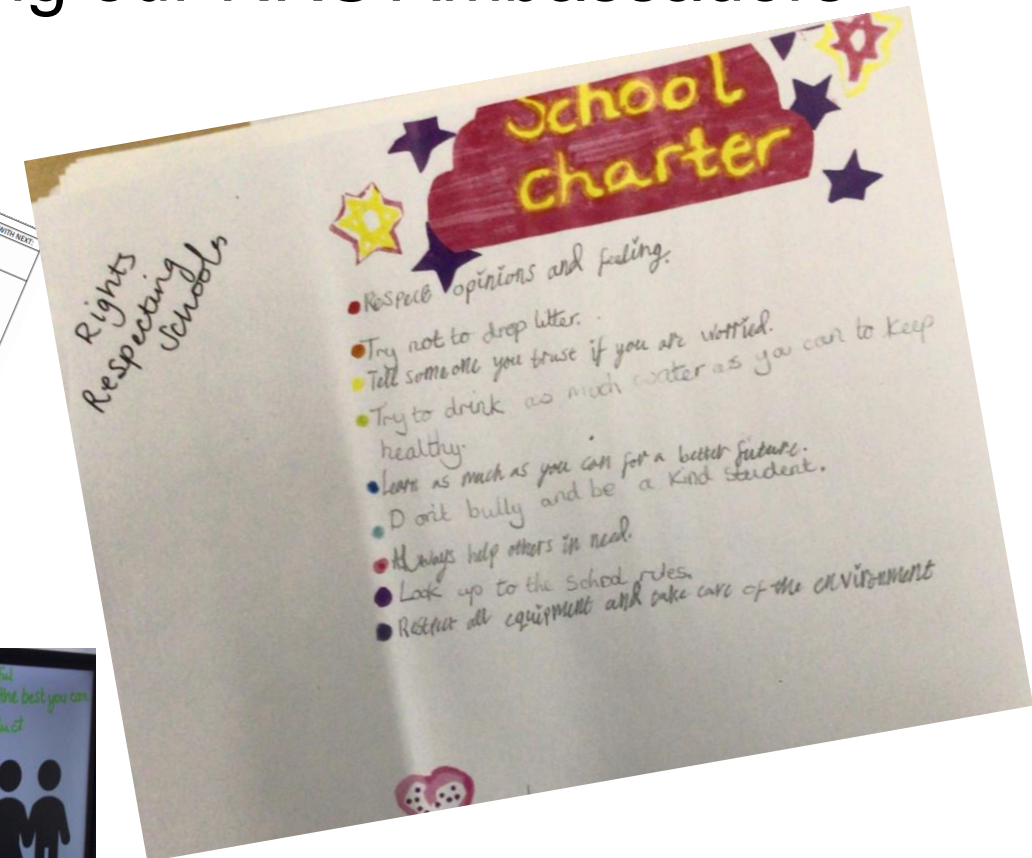 WITH NEXT:
Rights
Respecting
Schools
School
charter
Respect opinions and feeling.
Try not to drop litter.
Tell someone you trust if you are worried.
Try to drink as much water as you can to keep
healthy.
Learn as much as you can for a better future.
Don't bully and be a kind student.
Always help others in need.
Look up to the school rules.
Respect all equipment and take care of the environment
the best you can